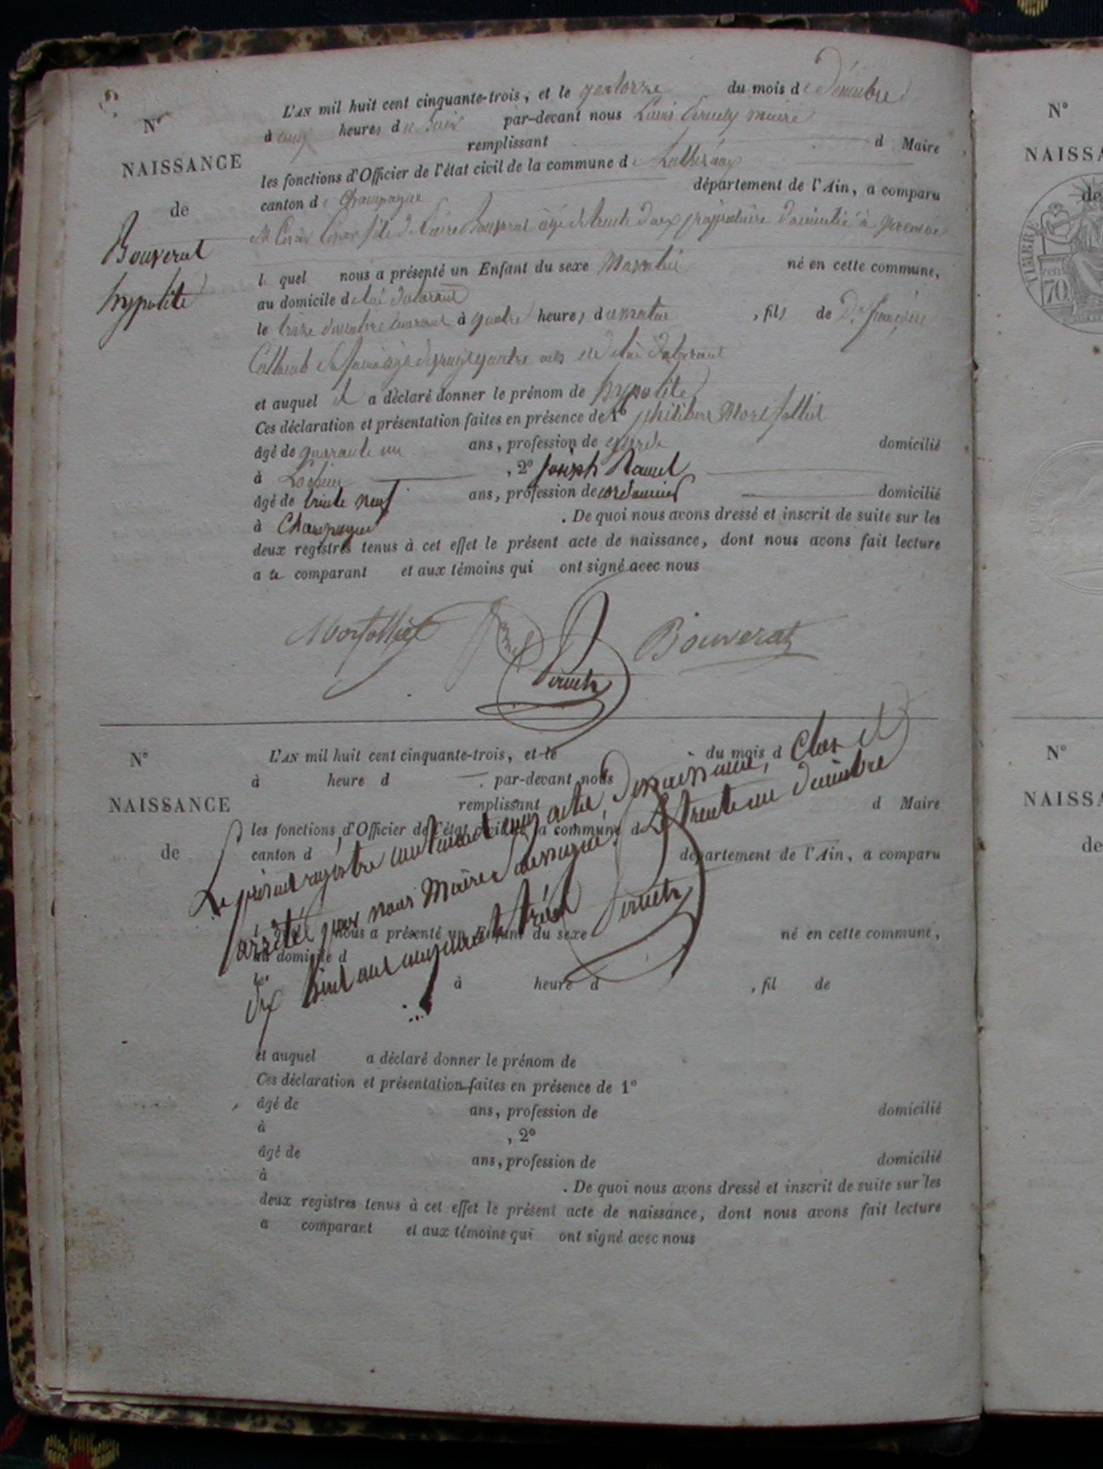 N°
NAISSANCE
de
Bouverat
hypolite
L'AN mil huit cent cinquante-trois, et le quatorze du mois de Décembre
à cinq heures du soir par-devant nous Louis maire
remplissant d Maire
les fonctions d'Officier de l'état civil de la commune de
canton de Champagne département de l'Ain, a comparu
M fils de Bouverat âgé de trente deux propriétaire domicilié à
lequel nous a présenté un Enfant du sexe Masculin né en cette commune,
au domicile de lui déclarant
le treize décembre courant à quatre heures du matin, fils de Dme françoise
âgée de vingt quatre ans et de lui déclarant
et auquel il a déclaré donner le prénom de hypolite
Ces déclaration et présentation faites en présence de 1° philibert Morfolliet
âgé de quarante un ans, profession de domicilié
à , 2° Joseph
âgé de trente neuf ans, profession de cordonnier domicilié
à Champagne . De quoi nous avons dressé et inscrit de suite sur les
deux registres tenus à cet effet le présent acte de naissance, dont nous avons fait lecture
a u comparant et aux témoins qui ont signé avec nous
Morfolliet Bouverat
N°
NAISSANCE
de
L'AN mil huit cent cinquante-trois, et le du mois d
à heure d par-devant nous
remplissant d Maire
les fonctions d'Officier de l'état civil de la commune d
canton d département de l'Ain, a comparu
Le présent registre contenant actes de naissance, Clos et
arrêté par nous Maire Le trente un décembre
dix huit cent cinquante trois
l quel nous a présenté un Enfant du sexe né en cette commune,
au domicile d
le à heure d , fil de
et auquel a déclaré donner le prénom de
Ces déclaration et présentation faites en présence de 1°
âgé de ans, profession de domicilié
à , 2°
âgé de ans, profession de domicilié
à . De quoi nous avons dressé et inscrit de suite sur les
deux registres tenus à cet effet le présent acte de naissance, dont nous avons fait lecture
a comparant et aux témoins qui ont signé avec nous
N°
NAISSA
de
TIMBRE
70
N°
NAISSA
de